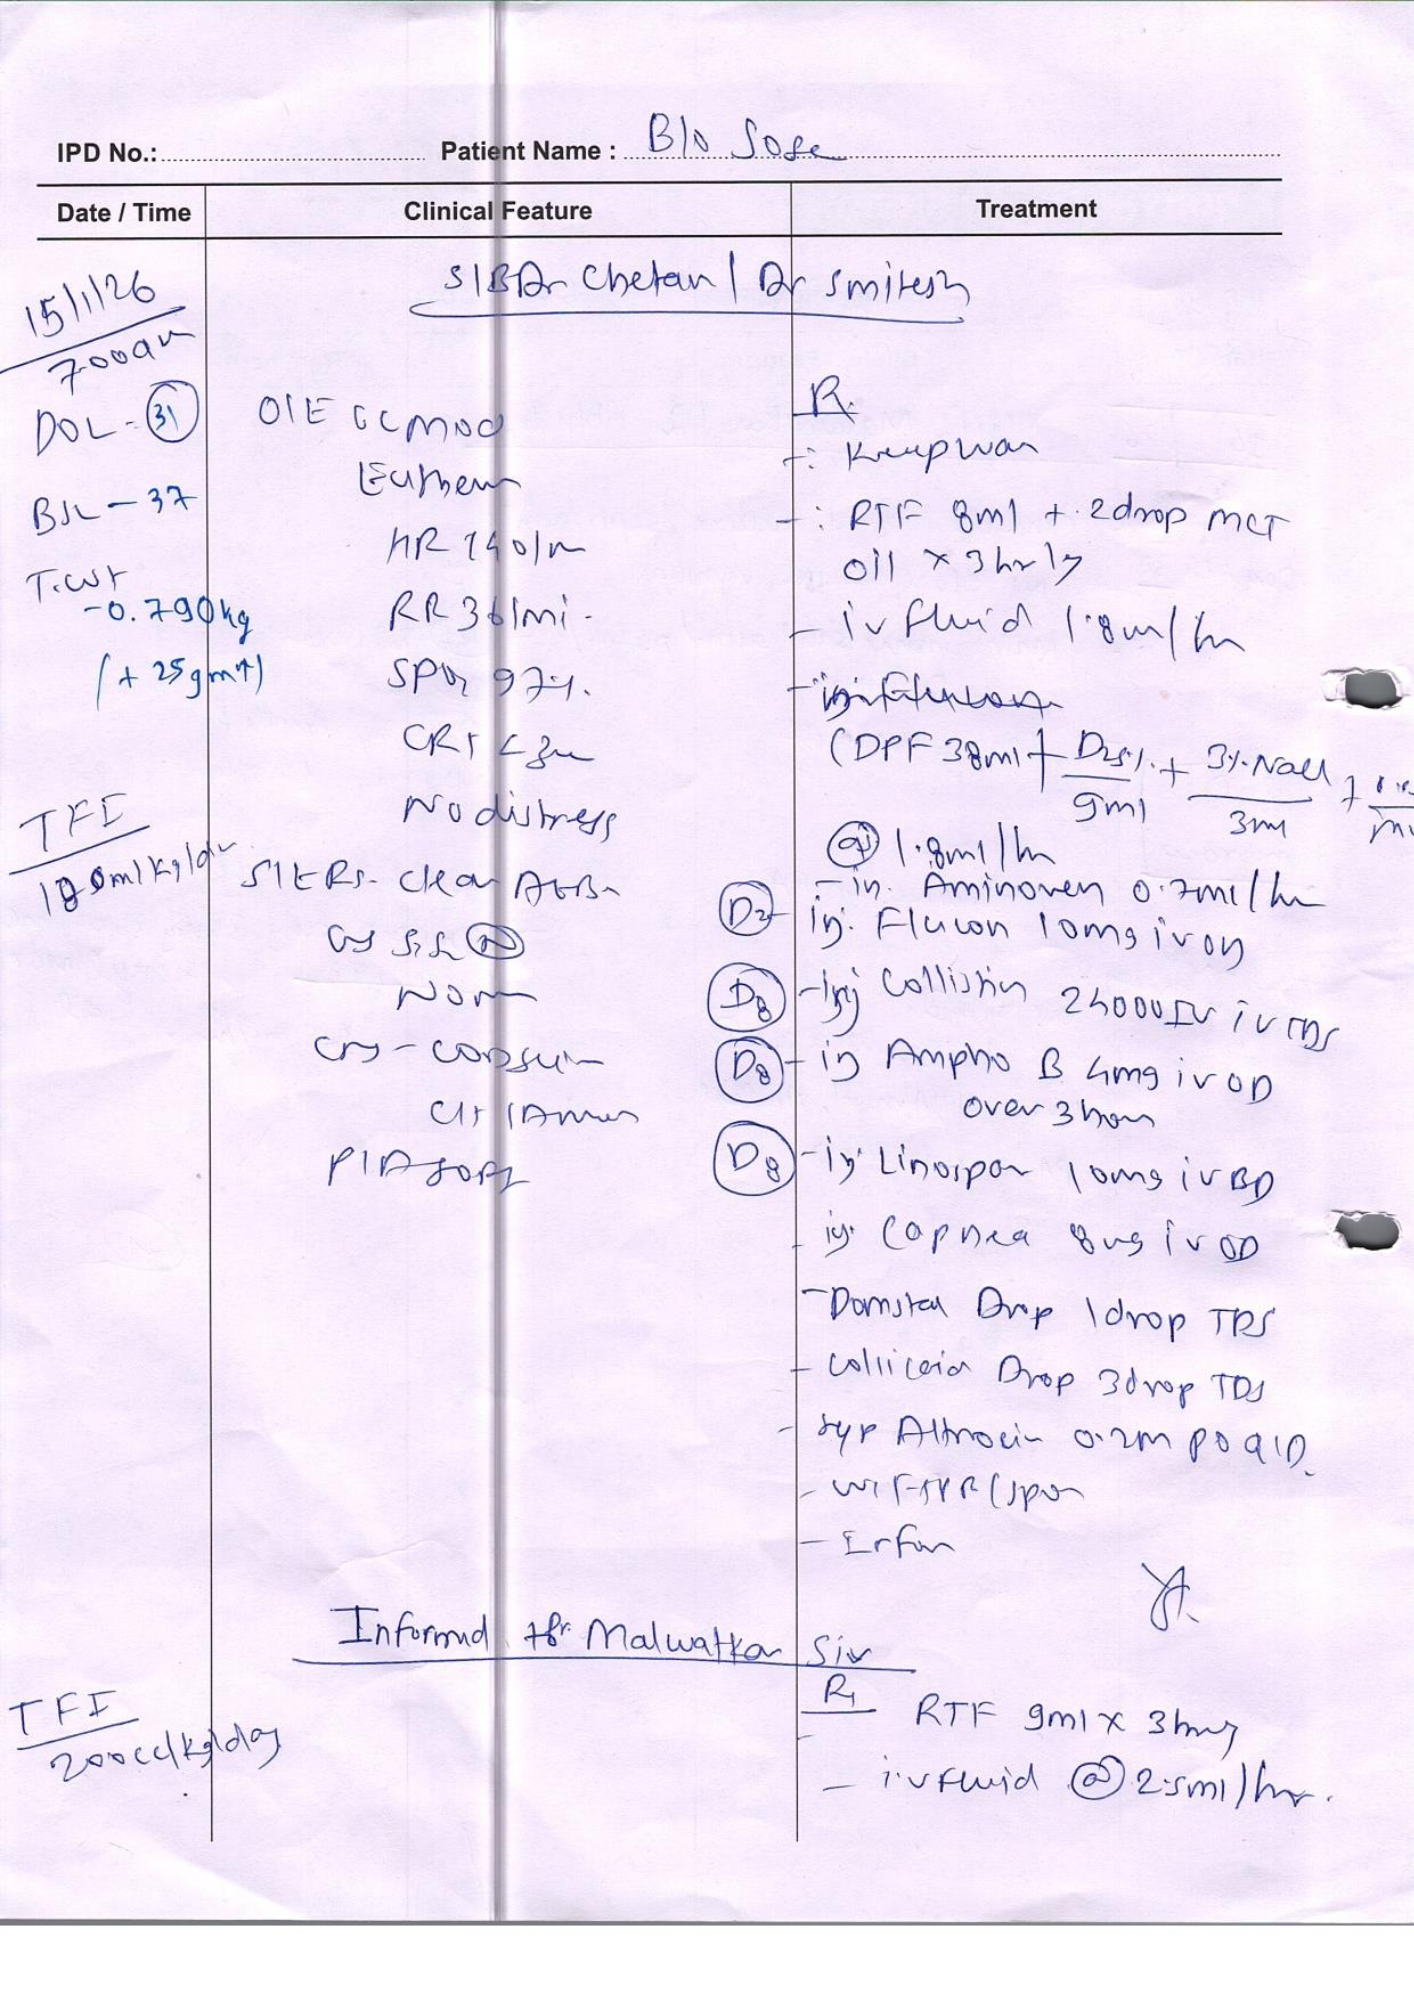 IPD No.: Patient Name : B/o Sose
Date / Time Clinical Feature Treatment
S/B Dr Chetan / Dr Smitesh
15/1/26
7:00am
DOL - 31
BSL - 37
T.wt
-0.790kg
(+ 25gm↑)
TFI
ml/kg/d
O/E GC Mod
Euthem
HR 140/m
RR 36/mi.
SPO2 97%.
CRT < 3
No distress
S/E RS- clear
CVS S1S2 (N)
CNS -
P/A soft
R
-: Keep warm
-: RTF 8ml + 2drop MCT
oil x 3hrly
- iv fluid 1.8ml/hr
(DPF 38ml + D25%. + 3%.NaCl +
9ml 3ml
@ 1.8ml/hr
- inj. Aminoven 0.7ml/hr
inj. Flucon 10mg iv OD
D8 - Inj Collistin 24000IU iv TDS
D8 - inj Ampho B 4mg iv OD
over 3hour
D8 - inj Linospan 10mg iv BD
inj. Capnea 8mg iv OD
- Domstal Drop 1drop TDS
- Collicaid Drop 3drop TDS
- syp Altrocin 0.2ml PO QID.
Informed Malwatkar Sir
TFI
200cc/kg/day
R
RTF 9ml x 3hrly
- i.v Fluid @ 2.5ml/hr.